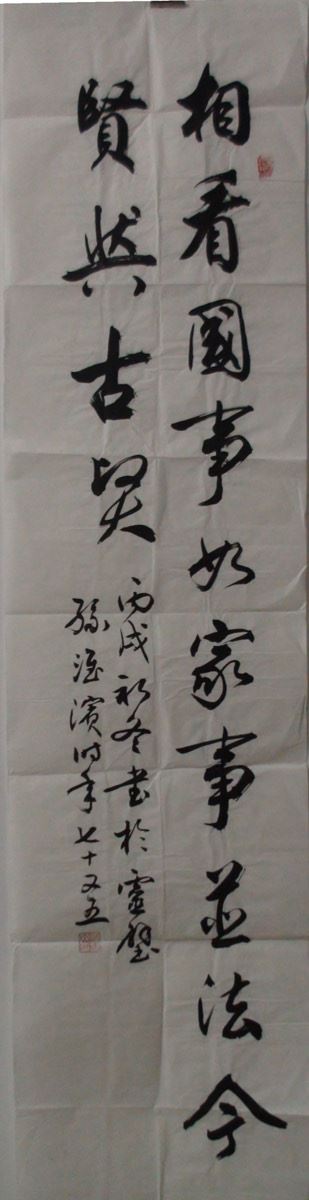 相看國事如家事並法今
賢與古賢
丙戌初冬書於靈璧
孫淮濱時年七十又五